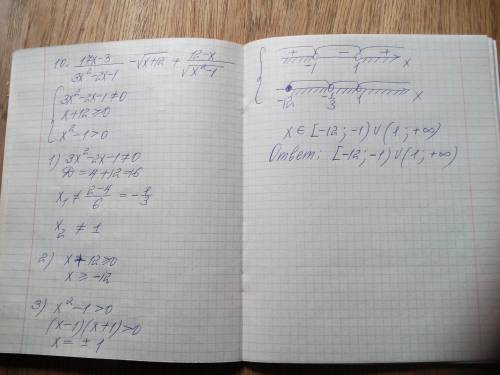 10. (17x-3)/(3x²-2x-1) - √(x+12) + (12-x)/√(x²-1)
{ 3x²-2x-1≠0
x+12≥0
x²-1>0
1) 3x²-2x-1≠0
D=4+12=16
x₁≠(2-4)/6 = -1/3
x₂ ≠ 1
2) x+12≥0
x≥-12
3) x²-1>0
(x-1)(x+1)>0
x=±1
{ + - +
-1 1 x
-12 -1/3 1 x
x∈[-12;-1)∪(1;+∞)
Ответ: [-12;-1)∪(1;+∞)